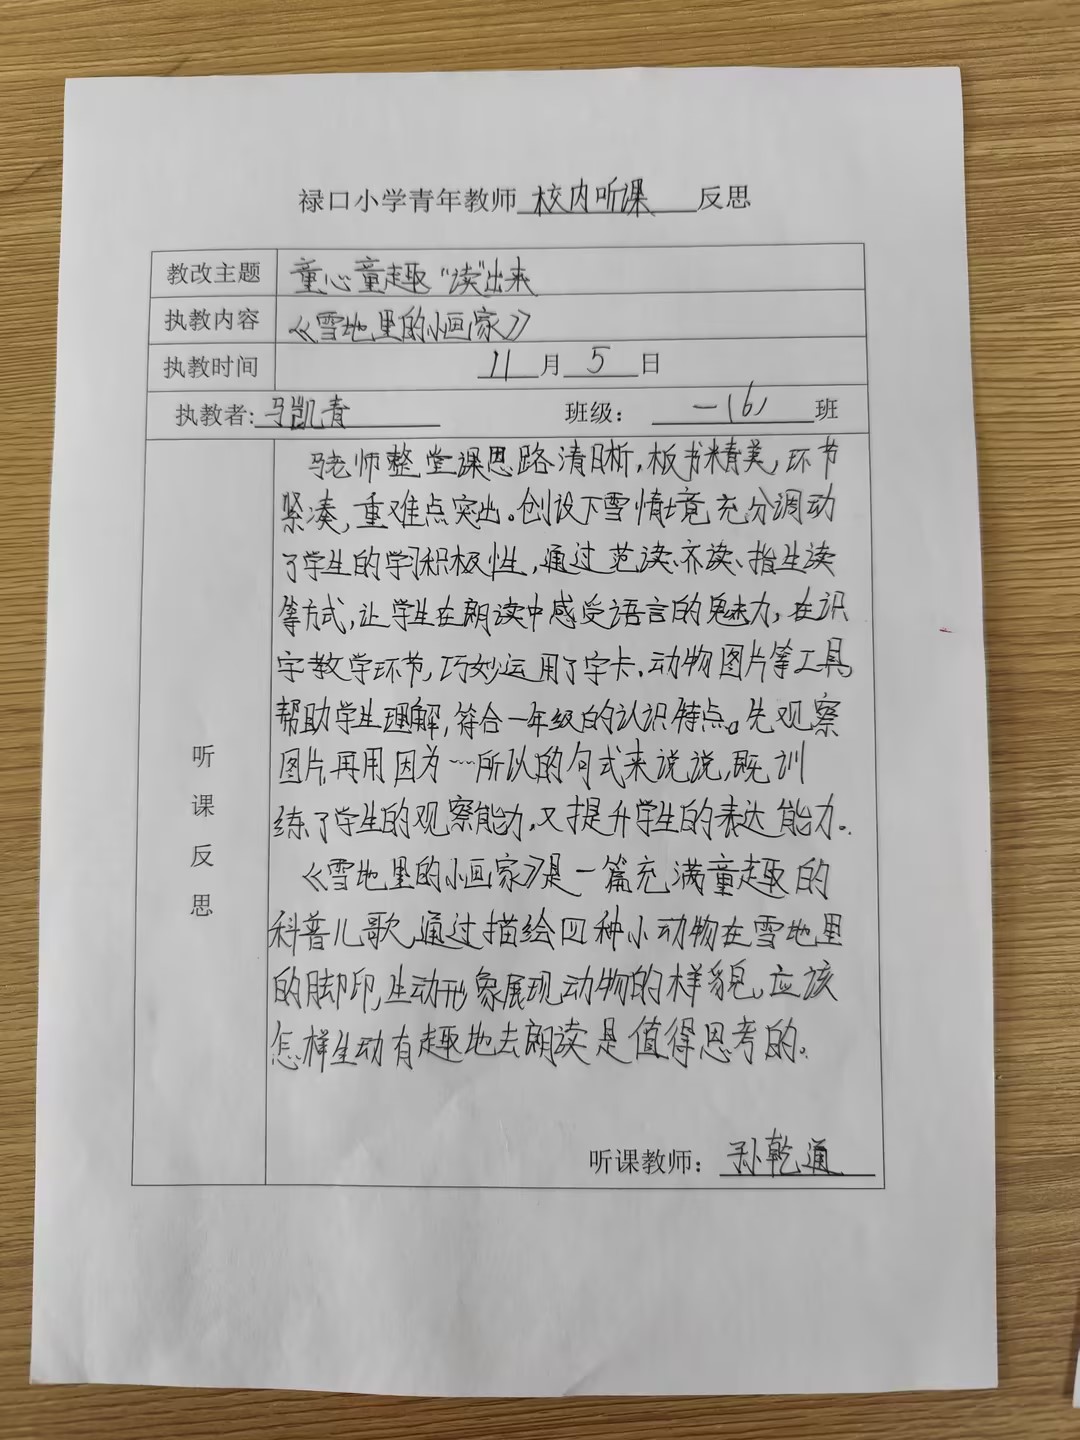 禄口小学青年教师 校内听课 反思
教改主题 童心童趣“读”出来
执教内容 《雪地里的小画家》
执教时间 11月5日
执教者:马凯青 班级：一(6)班
马老师整堂课思路清晰，板书精美，环节
紧凑，重难点突出。创设下雪情境充分调动
了学生的学习积极性，通过范读、齐读、指生读
等方式，让学生在朗读中感受语言的魅力，在识
字教学环节，巧妙运用了字卡、动物图片等工具，
帮助学生理解，符合一年级的认识特点。先观察
图片，再用因为……所以的句式来说说，既训
练了学生的观察能力，又提升学生的表达能力。
《雪地里的小画家》是一篇充满童趣的
科普儿歌，通过描绘四种小动物在雪地里
的脚印，生动形象展现动物的样貌，应该
怎样生动有趣地去朗读是值得思考的。
听课反思
听课教师：孙乾通